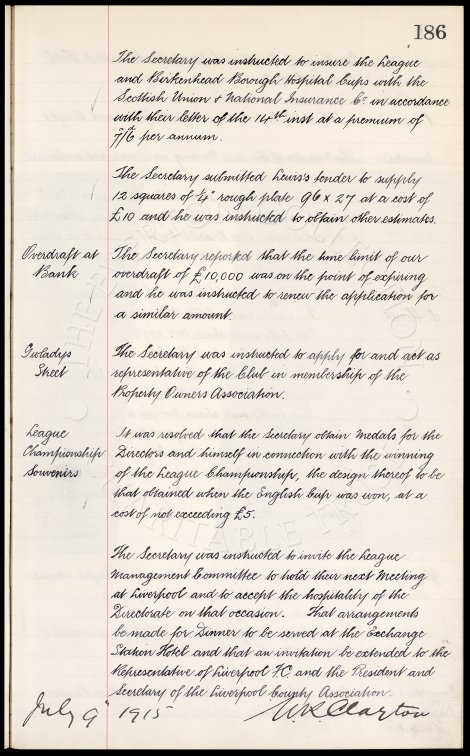 186
The Secretary was instructed to insure the League
and Birkenhead Borough Hospital Cups with the
Scottish Union & National Insurance Co in accordance
with their letter of the 14th inst at a premium of
7/6 per annum.
The Secretary submitted Lewis's tender to supply
12 squares of ¼" rough plate 96 x 27 at a cost of
£10 and he was instructed to obtain other estimates.
Overdraft at
Bank
The Secretary reported that the time limit of our
overdraft of £10,000 was on the point of expiring
and he was instructed to renew the application for
a similar amount.
Gwladys
Street
The Secretary was instructed to apply for and act as
representative of the Club in membership of the
Property Owners Association.
League
Championship
Souvenirs
It was resolved that the Secretary obtain Medals for the
Directors and himself in connection with the winning
of the League Championship, the design thereof to be
that obtained when the English Cup was won, at a
cost of not exceeding £5.
The Secretary was instructed to invite the League
Management Committee to hold their next Meeting
at Liverpool and to accept the hospitality of the
Directorate on that occasion. That arrangements
be made for Dinner to be served at the Exchange
Station Hotel and that an invitation be extended to the
Representative of Liverpool F.C. and the President and
Secretary of the Liverpool County Association.
July 9th 1915
W R Clayton